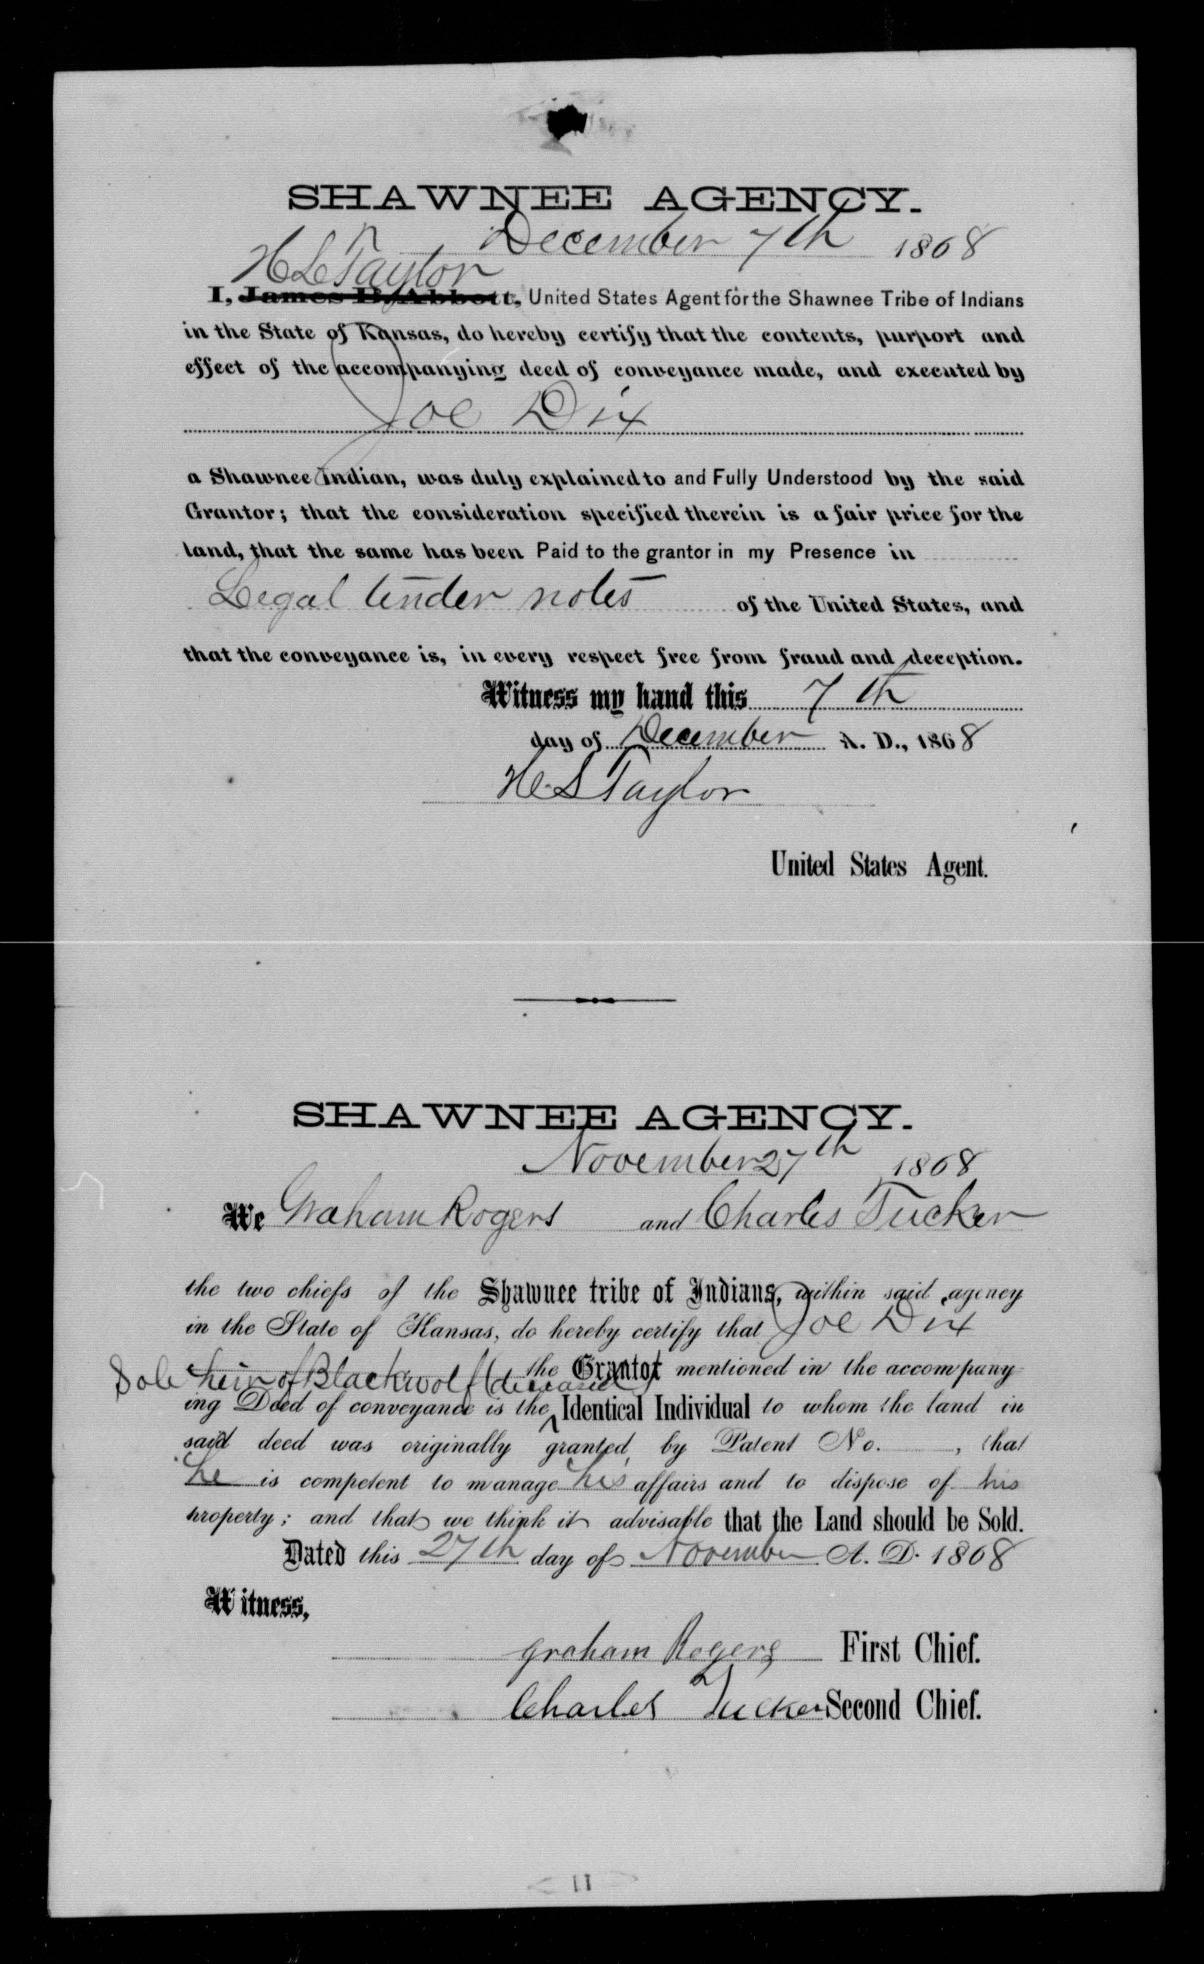 SHAWNEE AGENCY.
December 7th 1868
H L Taylor
I, James B. Abbott, United States Agent for the Shawnee Tribe of Indians
in the State of Kansas, do hereby certify that the contents, purport and
effect of the accompanying deed of conveyance made, and executed by
Joe Dix
a Shawnee Indian, was duly explained to and Fully Understood by the said
Grantor; that the consideration specified therein is a fair price for the
land, that the same has been Paid to the grantor in my Presence in
Legal tender notes of the United States, and
that the conveyance is, in every respect free from fraud and deception.
Witness my hand this 7th
day of December A. D., 1868
H L Taylor
United States Agent.
SHAWNEE AGENCY.
November 27th 1868
We Graham Rogers and Charles Tucker
the two chiefs of the Shawnee tribe of Indians, within said agency
in the State of Kansas, do hereby certify that Joe Dix
the Grantor mentioned in the accompany-
Sole heir of Blackwolf (deceased)
ing Deed of conveyance is the Identical Individual to whom the land in
said deed was originally granted, by Patent No. , that
he is competent to manage his affairs and to dispose of his
property; and that we think it advisable that the Land should be Sold.
Dated this 27th day of November A. D. 1868
Witness,
Graham Rogers First Chief.
Charles Tucker Second Chief.
11